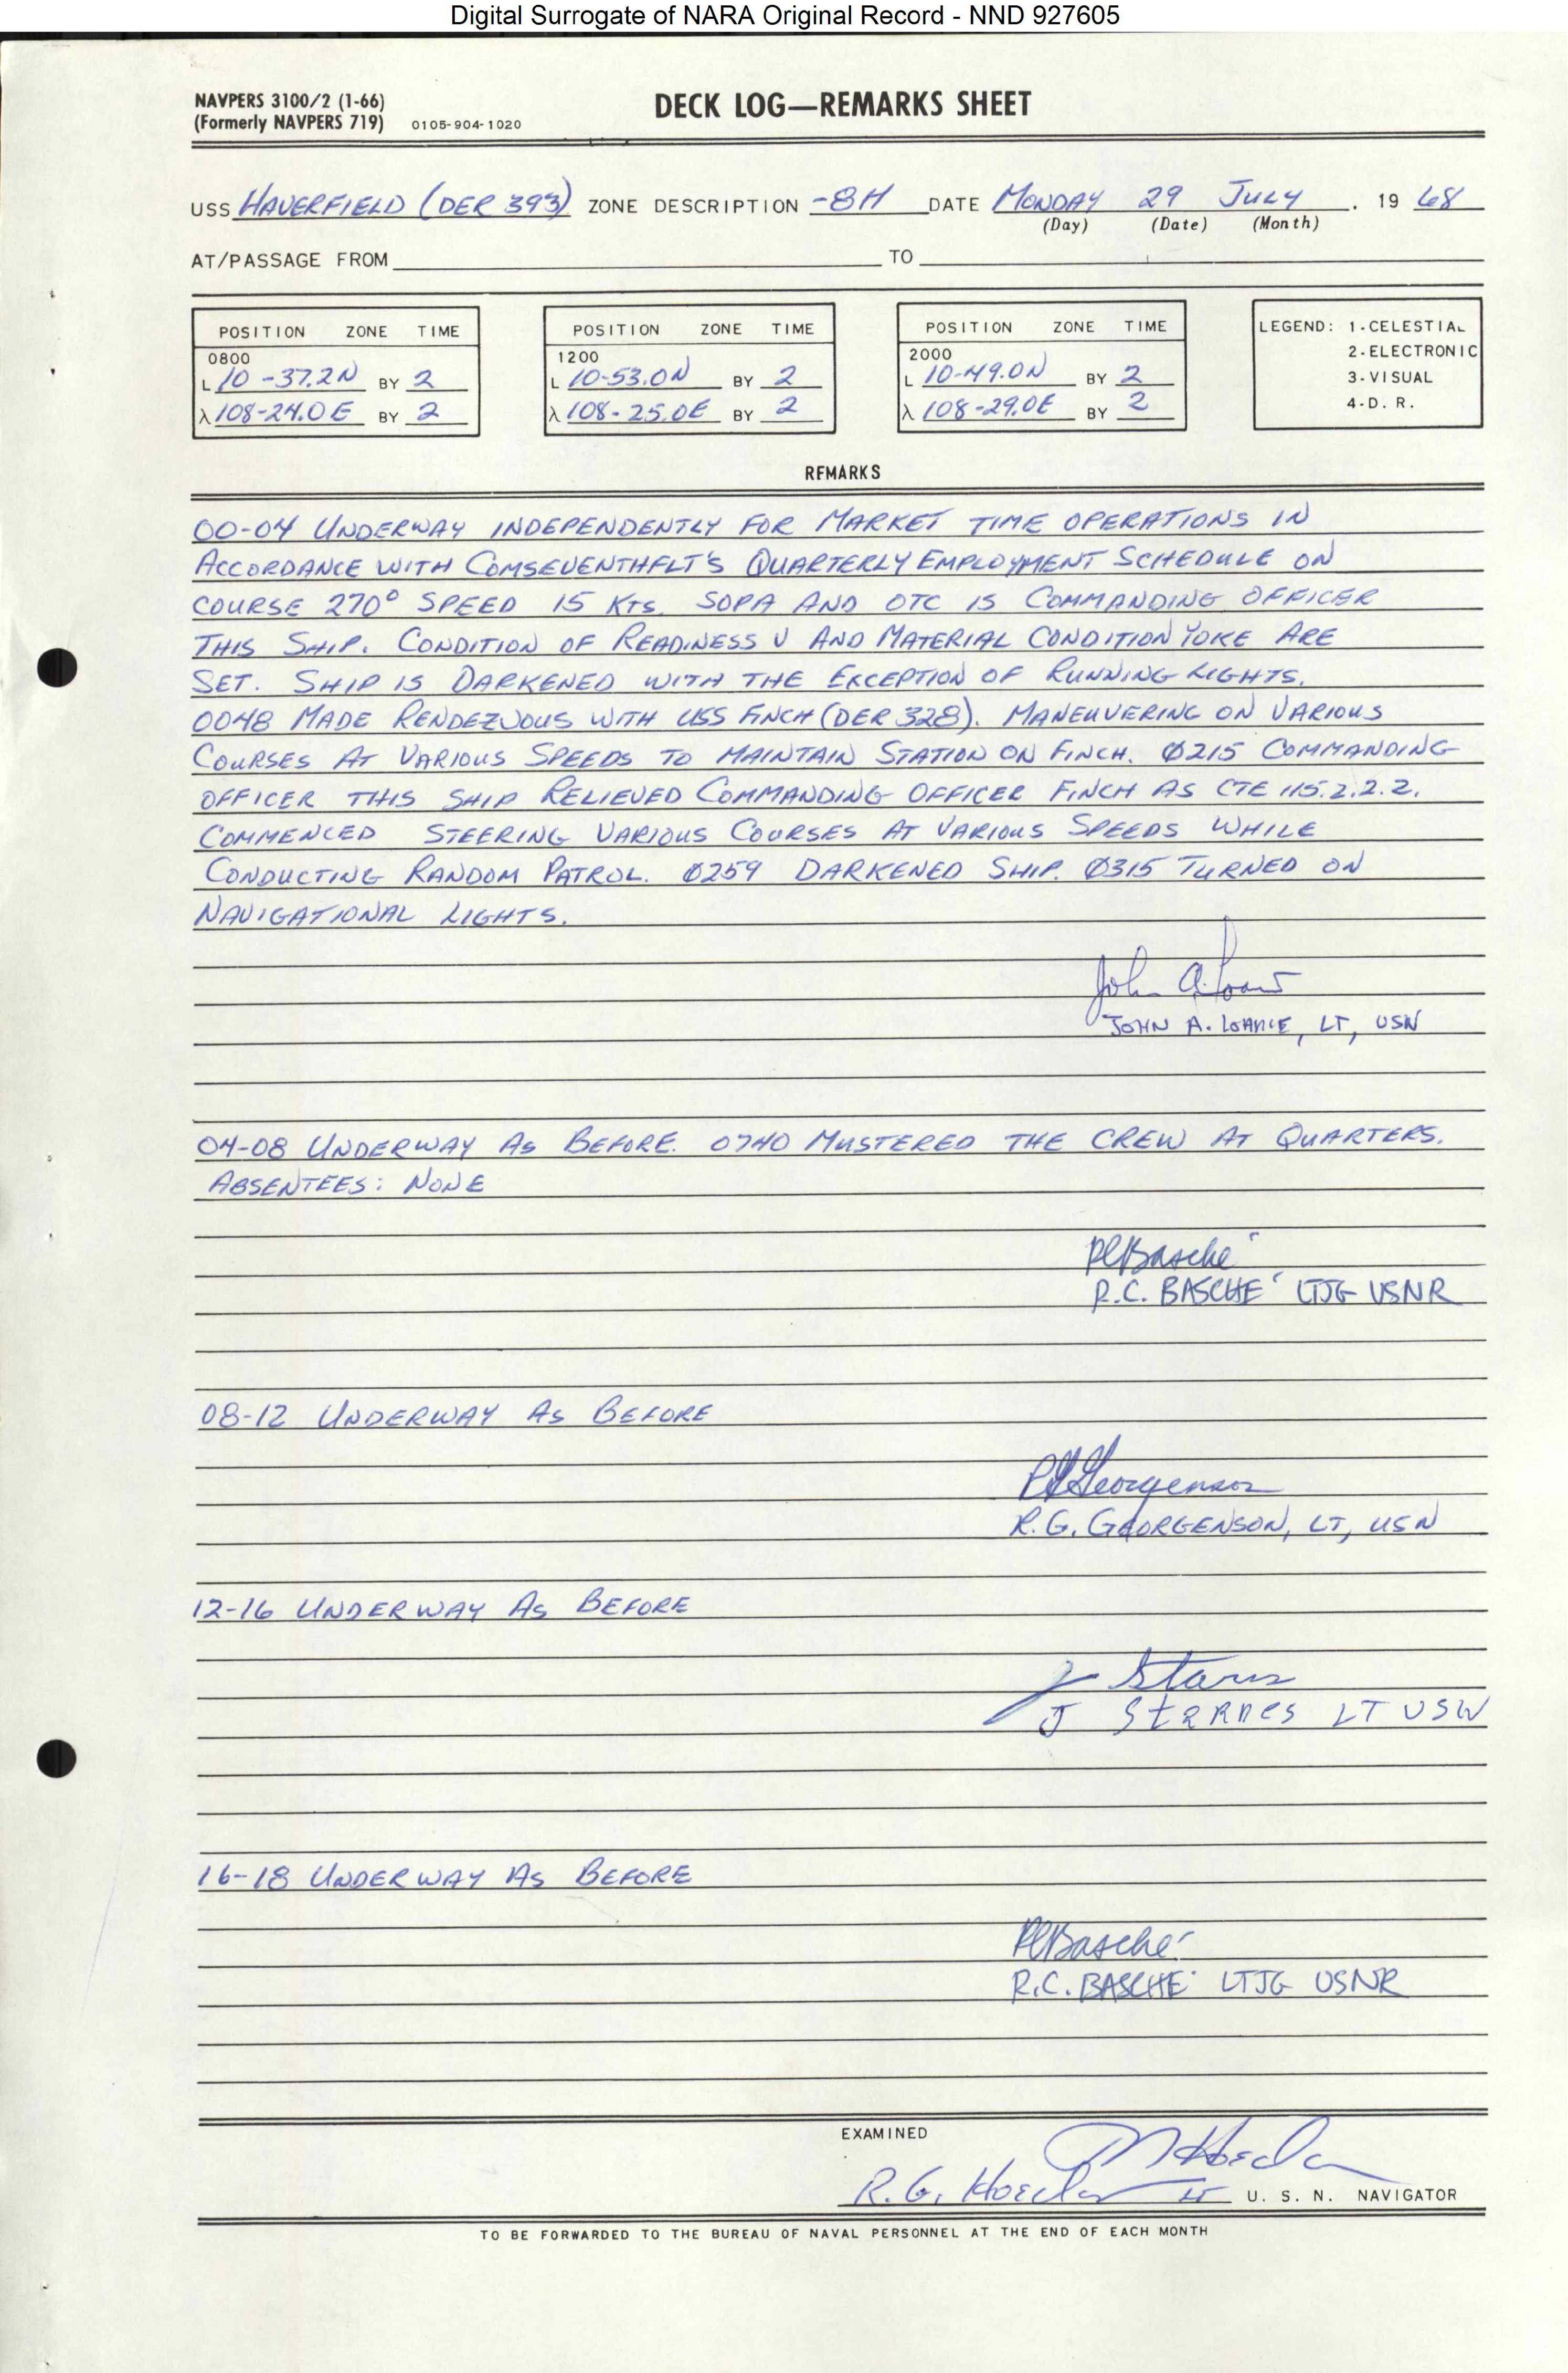 Digital Surrogate of NARA Original Record - NND 927605
NAVPERS 3100/2 (1-66)
(Formerly NAVPERS 719) 0105-904-1020
DECK LOG—REMARKS SHEET
USS HAVERFIELD (DER 393) ZONE DESCRIPTION -8H DATE MONDAY 29 JULY , 19 68
(Day) (Date) (Month)
AT/PASSAGE FROM TO
POSITION ZONE TIME
0800
L 10-37.2N BY 2
λ 108-24.0E BY 2
POSITION ZONE TIME
1200
L 10-53.0N BY 2
λ 108-25.0E BY 2
POSITION ZONE TIME
2000
L 10-49.0N BY 2
λ 108-29.0E BY 2
LEGEND: 1-CELESTIAL
2-ELECTRONIC
3-VISUAL
4-D. R.
REMARKS
00-04 UNDERWAY INDEPENDENTLY FOR MARKET TIME OPERATIONS IN
ACCORDANCE WITH COMSEVENTHFLT'S QUARTERLY EMPLOYMENT SCHEDULE ON
COURSE 270° SPEED 15 KTS. SOPA AND OTC IS COMMANDING OFFICER
THIS SHIP. CONDITION OF READINESS V AND MATERIAL CONDITION YOKE ARE
SET. SHIP IS DARKENED WITH THE EXCEPTION OF RUNNING LIGHTS.
0048 MADE RENDEZVOUS WITH USS FINCH (DER 328). MANEUVERING ON VARIOUS
COURSES AT VARIOUS SPEEDS TO MAINTAIN STATION ON FINCH. 0215 COMMANDING
OFFICER THIS SHIP RELIEVED COMMANDING OFFICER FINCH AS CTE 115.2.2.2.
COMMENCED STEERING VARIOUS COURSES AT VARIOUS SPEEDS WHILE
CONDUCTING RANDOM PATROL. 0259 DARKENED SHIP. 0315 TURNED ON
NAVIGATIONAL LIGHTS.
John A.
JOHN A. LOANCE, LT, USN
04-08 UNDERWAY AS BEFORE. 0740 MUSTERED THE CREW AT QUARTERS.
ABSENTEES: NONE
RCBasché
R.C. BASCHE' LTJG USNR
08-12 UNDERWAY AS BEFORE
RGGeorgenson
R.G. GEORGENSON, LT, USN
12-16 UNDERWAY AS BEFORE
J Starns
J STARNES LT USN
16-18 UNDERWAY AS BEFORE
RCBasché
R.C. BASCHE' LTJG USNR
EXAMINED
R.G. LT U. S. N. NAVIGATOR
TO BE FORWARDED TO THE BUREAU OF NAVAL PERSONNEL AT THE END OF EACH MONTH